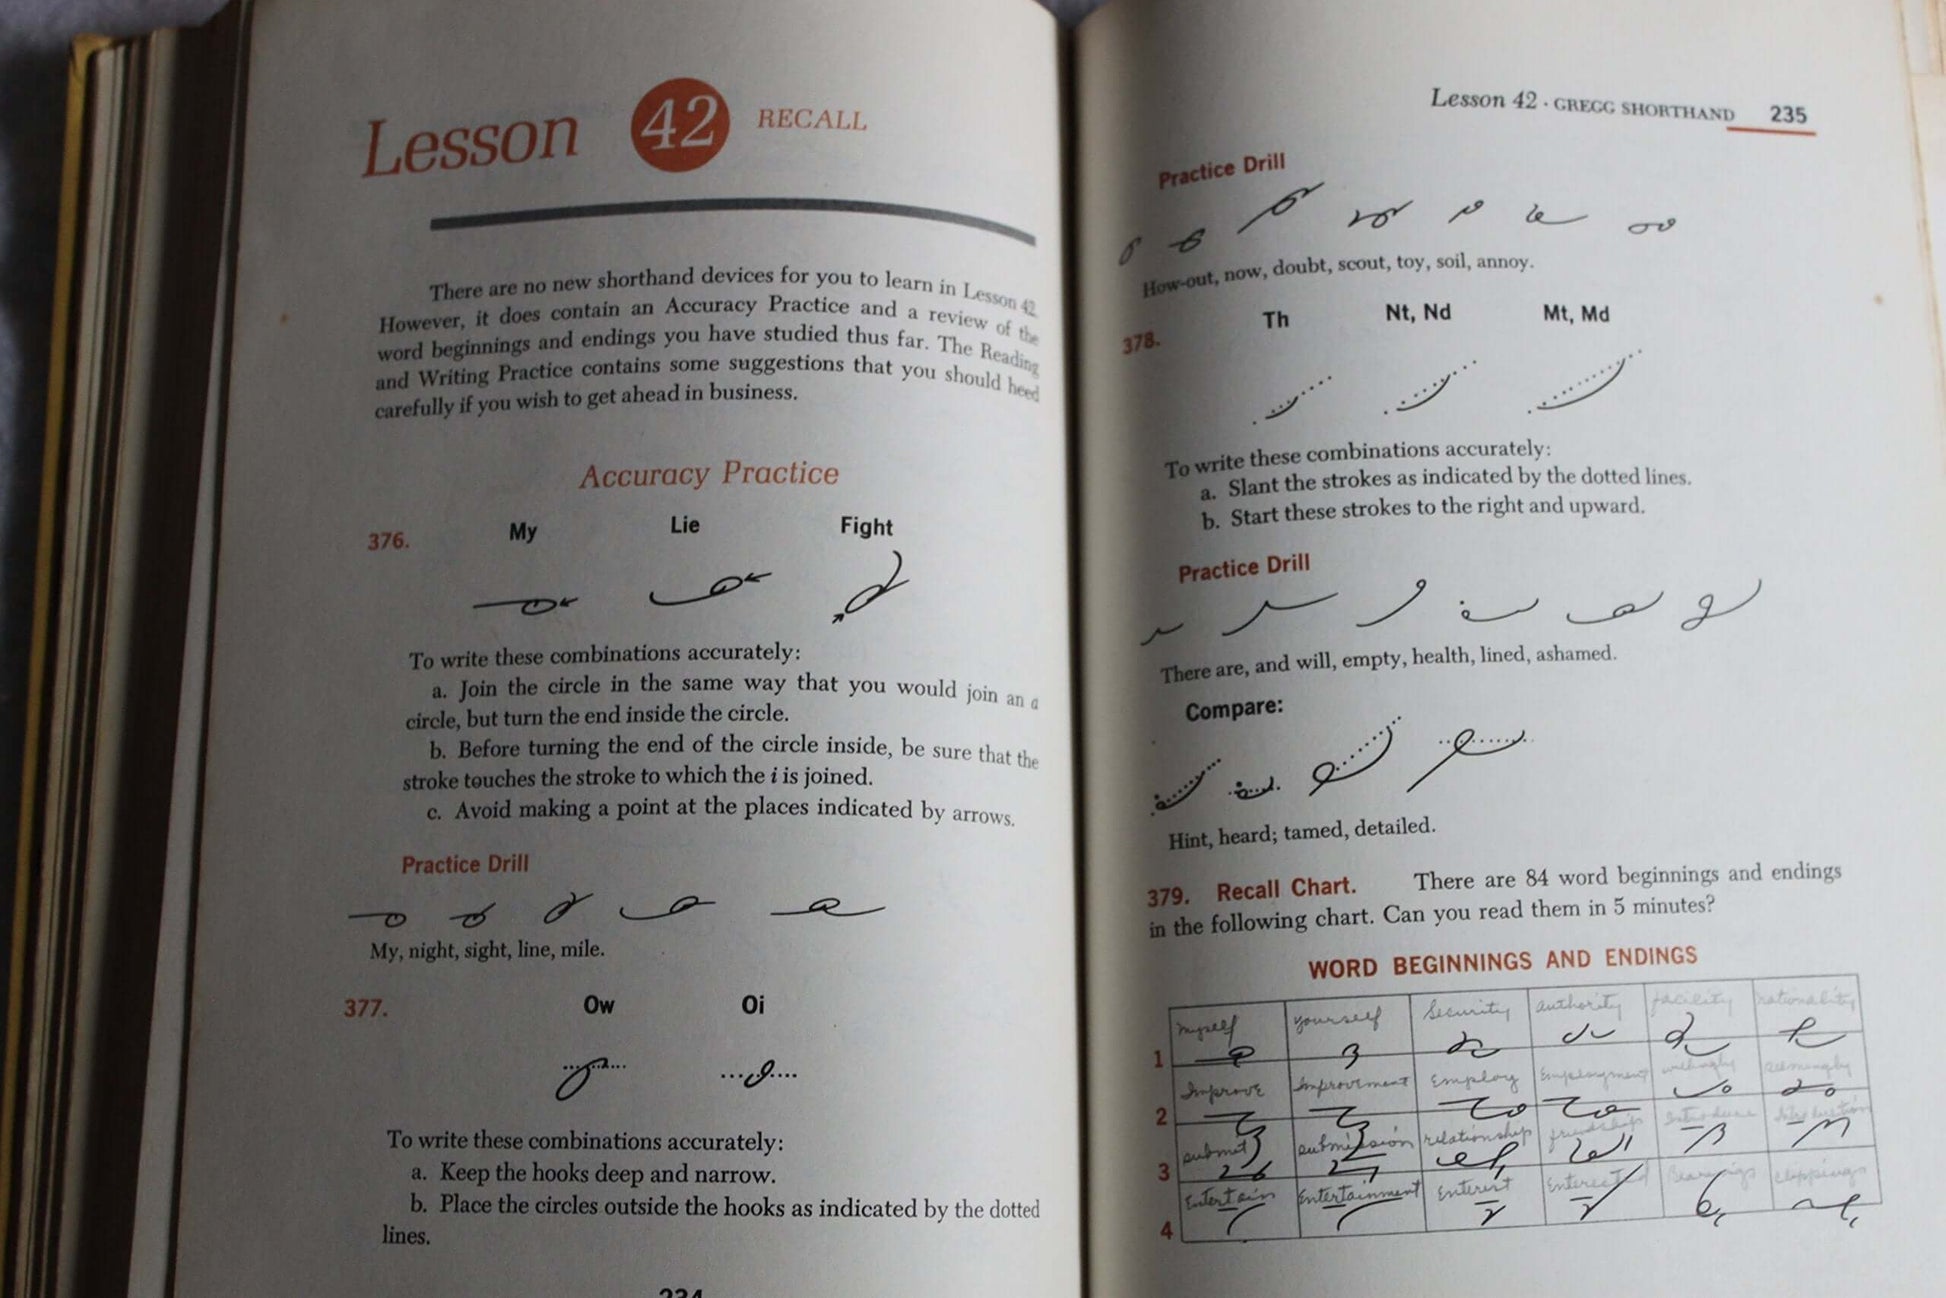 Lesson 42 RECALL
There are no new shorthand devices for you to learn in Lesson 42.
However, it does contain an Accuracy Practice and a review of the
word beginnings and endings you have studied thus far. The Reading
and Writing Practice contains some suggestions that you should heed
carefully if you wish to get ahead in business.
Accuracy Practice
376. My Lie Fight
To write these combinations accurately:
a. Join the circle in the same way that you would join an a
circle, but turn the end inside the circle.
b. Before turning the end of the circle inside, be sure that the
stroke touches the stroke to which the i is joined.
c. Avoid making a point at the places indicated by arrows.
Practice Drill
My, night, sight, line, mile.
377. Ow Oi
To write these combinations accurately:
a. Keep the hooks deep and narrow.
b. Place the circles outside the hooks as indicated by the dotted
lines.
234
Lesson 42 · GREGG SHORTHAND 235
Practice Drill
How-out, now, doubt, scout, toy, soil, annoy.
378. Th Nt, Nd Mt, Md
To write these combinations accurately:
a. Slant the strokes as indicated by the dotted lines.
b. Start these strokes to the right and upward.
Practice Drill
There are, and will, empty, health, lined, ashamed.
Compare:
Hint, heard; tamed, detailed.
379. Recall Chart. There are 84 word beginnings and endings
in the following chart. Can you read them in 5 minutes?
WORD BEGINNINGS AND ENDINGS
myself yourself Security authority facility rationality
1
Improve Improvement Employ Employment willingly seemingly
2
submit submission relationship friendship Introduce Introduction
3
Entertain Entertainment Enterest Enterested Bearings clippings
4